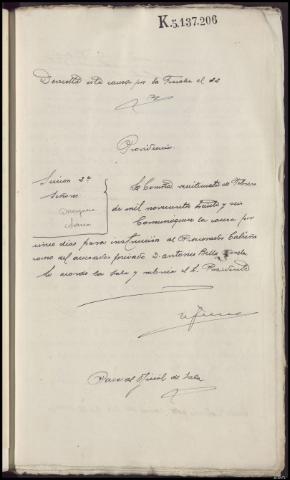 K.5.137.206
Devuelta esta causa por la Fiscalía el 22
Providencia
Sección 2ª
Señores
La Coruña veintiseis de Febrero
de mil novecientos treinta y seis
Comuníquese la causa por
cinco días para instrucción al Procurador
como del acusador privado D. Antonio Bello
lo acordó la Sala y rubrica el S. Presidente
Oficial de Sala